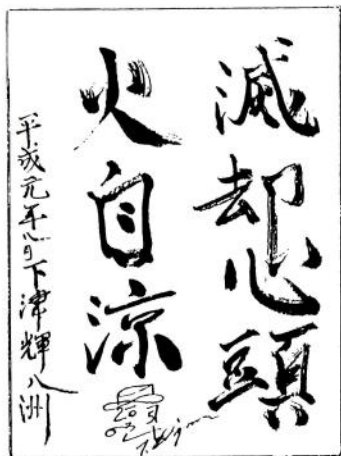 滅却心頭
火自涼
平成元年八月下津輝八洲